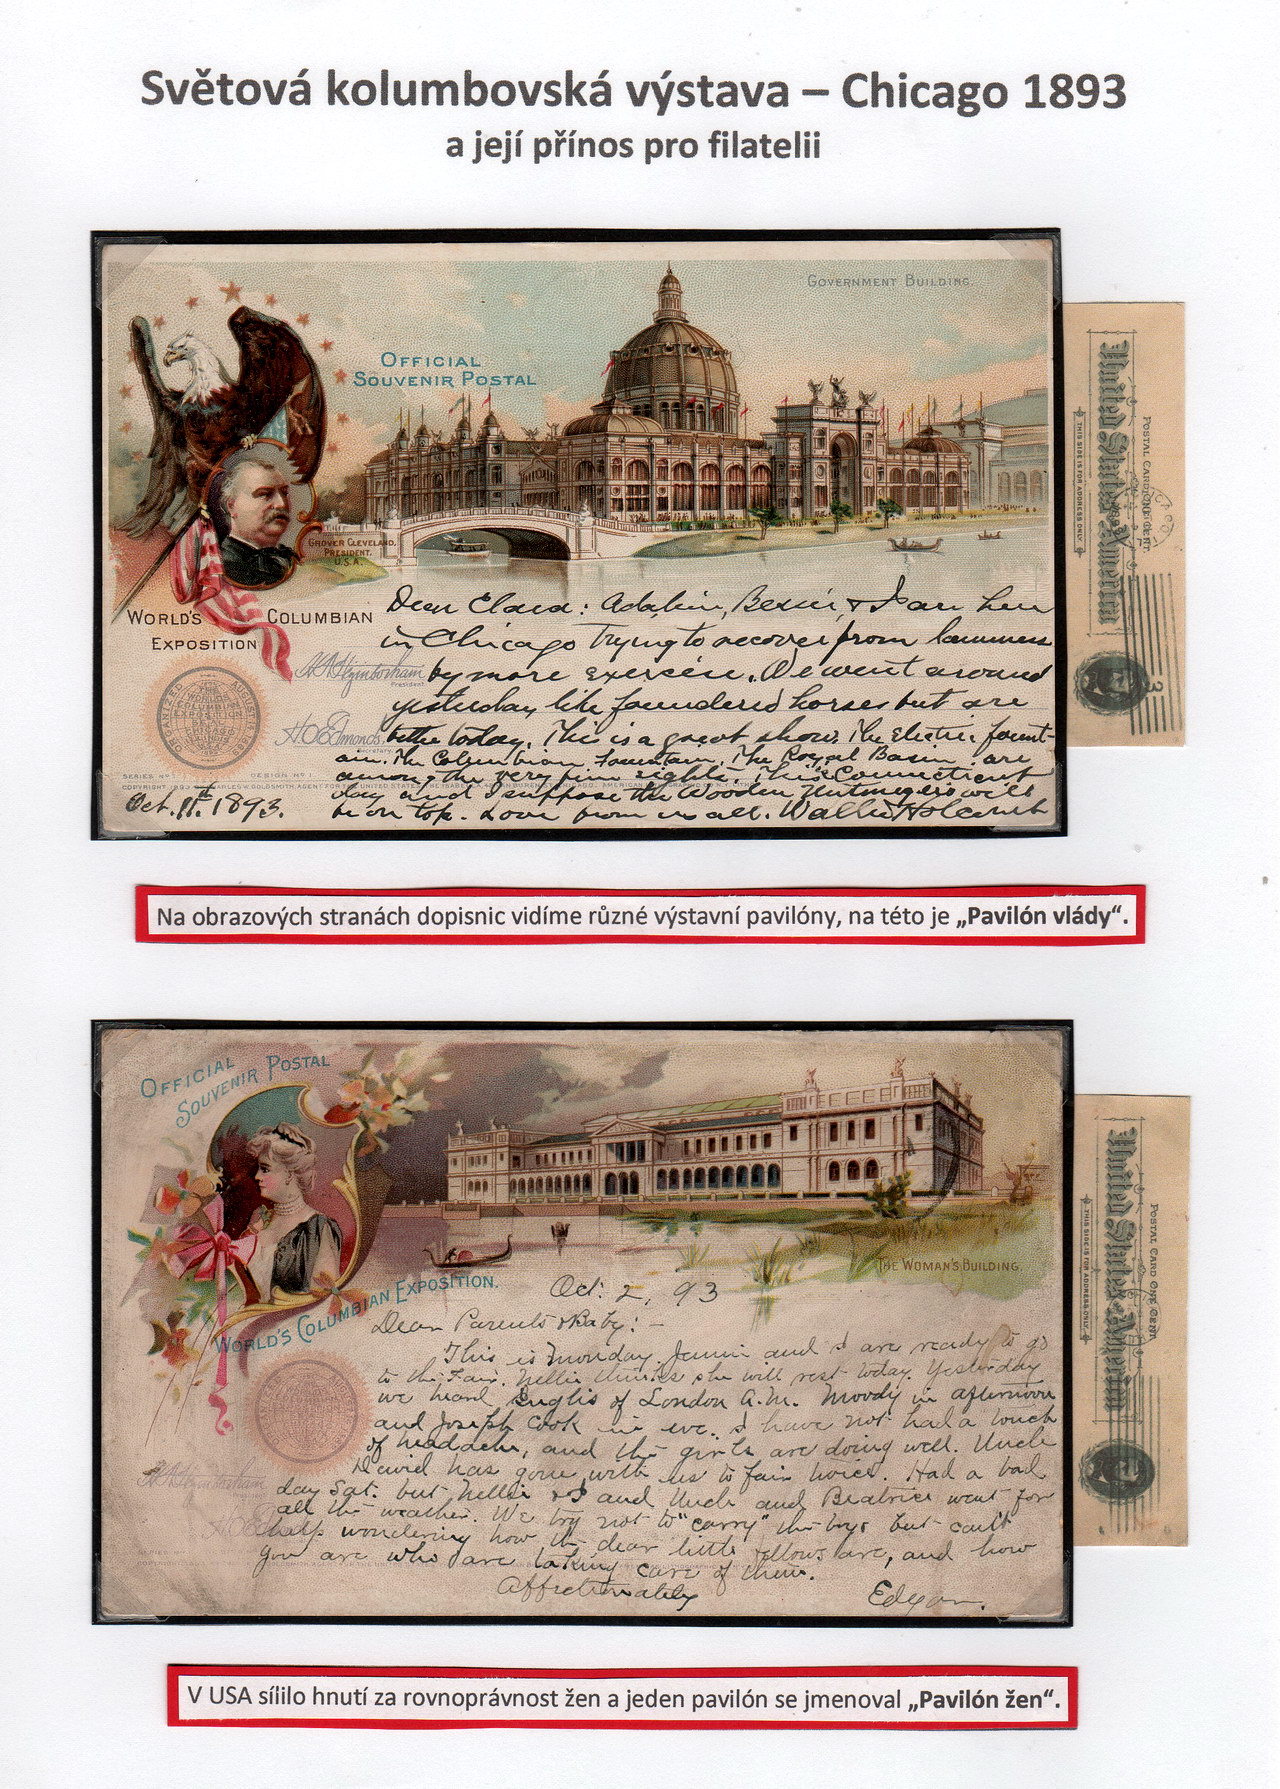 Světová kolumbovská výstava – Chicago 1893
a její přínos pro filatelii
GOVERNMENT BUILDING.
OFFICIAL
SOUVENIR POSTAL
GROVER CLEVELAND.
PRESIDENT.
U.S.A.
WORLD'S COLUMBIAN
EXPOSITION
Dear Clara: Bessie, & I are here
in Chicago trying to recover from lameness
by more exercise. We went around
yesterday like foundered horses but are
better today. This is a great show. The Electric fount-
ain. The Columbian Fountain. The Royal Basin are
among the very fine sights. This is Connecticut
day and I suppose the Wooden Nutmegs will
be on top. Love from us all.
President
Secretary
SERIES Nº 1 DESIGN Nº 1
Oct. 11th 1893.
United States of America
POSTAL CARD ONE CENT.
THIS SIDE IS FOR ADDRESS ONLY.
Na obrazových stranách dopisnic vidíme různé výstavní pavilóny, na této je „Pavilón vlády“.
OFFICIAL
SOUVENIR POSTAL
WORLD'S COLUMBIAN EXPOSITION.
THE WOMAN'S BUILDING.
Oct. 2, 93
Dear Parents & Baby: –
This is Monday. Jennie and I are ready to go
to the Fair. Nellie thinks she will rest today. Yesterday
we heard of London A.M. Moody in afternoon
and Joseph Cook in eve. I have not had a touch
of headache, and the girls are doing well. Uncle
David has gone with us to fair twice. Had a bad
day Sat. but Nellie & I and Uncle and Beatrice went for
all the weather. We try not to "carry" the boys but can't
help wondering how the dear little fellows are, and how
you are who are taking care of them.
Affectionately Edgar.
United States of America
POSTAL CARD ONE CENT.
THIS SIDE IS FOR ADDRESS ONLY.
V USA sílilo hnutí za rovnoprávnost žen a jeden pavilón se jmenoval „Pavilón žen“.